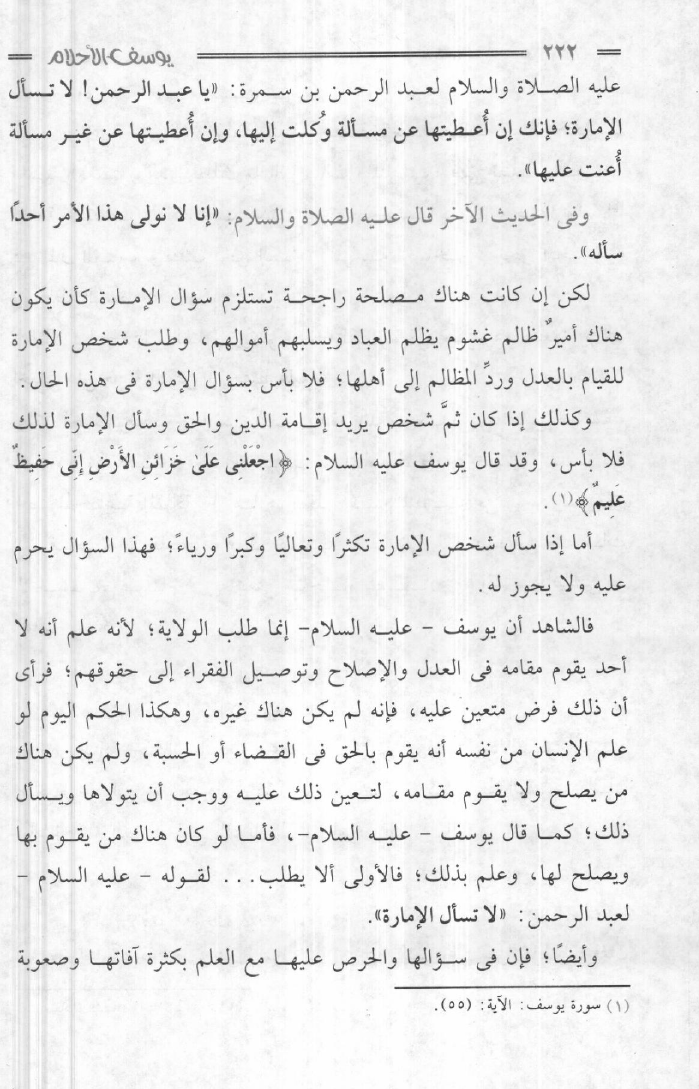 ٢٢٢ يوسف الأحلام
عليه الصلاة والسلام لعبد الرحمن بن سمرة: «يا عبد الرحمن! لا تسأل
الإمارة؛ فإنك إن أُعطيتها عن مسألة وُكلت إليها، وإن أُعطيتها عن غير مسألة
أُعنت عليها».
وفى الحديث الآخر قال عليه الصلاة والسلام: «إنا لا نولى هذا الأمر أحدًا
سأله».
لكن إن كانت هناك مصلحة راجحة تستلزم سؤال الإمارة كأن يكون
هناك أميرٌ ظالم غشوم يظلم العباد ويسلبهم أموالهم، وطلب شخص الإمارة
للقيام بالعدل وردِّ المظالم إلى أهلها؛ فلا بأس بسؤال الإمارة فى هذه الحال.
وكذلك إذا كان ثمَّ شخص يريد إقامة الدين والحق وسأل الإمارة لذلك
فلا بأس، وقد قال يوسف عليه السلام: ﴿اجْعَلْنِى عَلَىٰ خَزَائِنِ الأَرْضِ إِنِّى حَفِيظٌ
عَلِيمٌ﴾(١).
أما إذا سأل شخص الإمارة تكثرًا وتعاليًا وكبرًا ورياءً؛ فهذا السؤال يحرم
عليه ولا يجوز له.
فالشاهد أن يوسف - عليه السلام- إنما طلب الولاية؛ لأنه علم أنه لا
أحد يقوم مقامه فى العدل والإصلاح وتوصيل الفقراء إلى حقوقهم؛ فرأى
أن ذلك فرض متعين عليه، فإنه لم يكن هناك غيره، وهكذا الحكم اليوم لو
علم الإنسان من نفسه أنه يقوم بالحق فى القضاء أو الحسبة، ولم يكن هناك
من يصلح ولا يقوم مقامه، لتعين ذلك عليه ووجب أن يتولاها ويسأل
ذلك؛ كما قال يوسف - عليه السلام-، فأما لو كان هناك من يقوم بها
ويصلح لها، وعلم بذلك؛ فالأولى ألا يطلب... لقوله - عليه السلام -
لعبد الرحمن: «لا تسأل الإمارة».
وأيضًا؛ فإن فى سؤالها والحرص عليها مع العلم بكثرة آفاتها وصعوبة
(١) سورة يوسف: الآية: (٥٥).